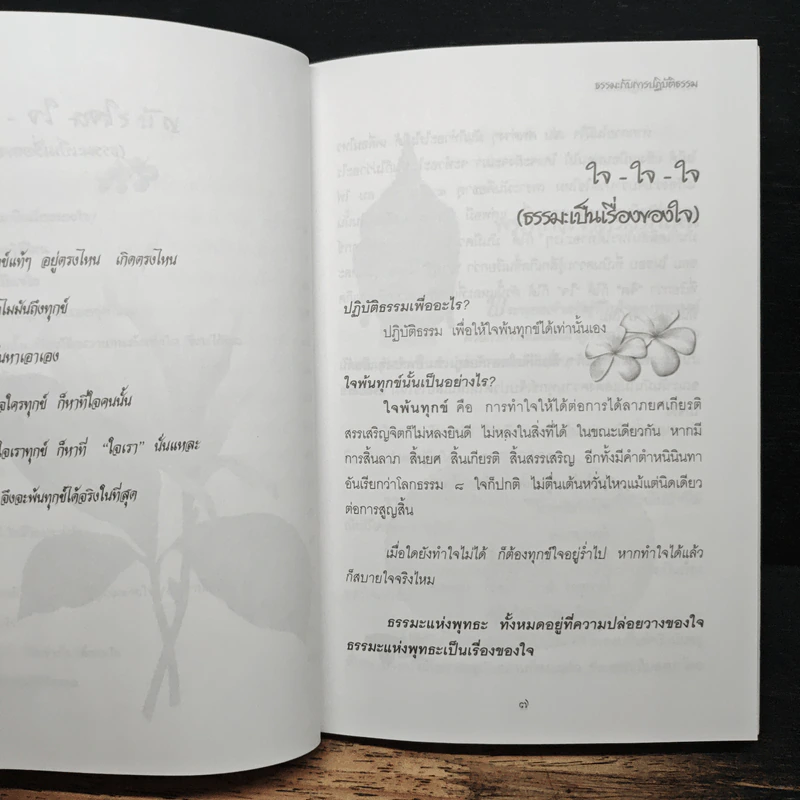 ทุกข์แท้ๆ อยู่ตรงไหน เกิดตรงไหน
ไมมันถึงทุกข์
หาเอาเอง
ใจใครทุกข์ ก็หาที่ใจคนนั้น
ใจเราทุกข์ ก็หาที่ “ใจเรา” นั่นแหละ
จึงจะพ้นทุกข์ได้จริงในที่สุด
ธรรมะกับการปฏิบัติธรรม
ใจ - ใจ - ใจ
(ธรรมะเป็นเรื่องของใจ)
ปฏิบัติธรรมเพื่ออะไร?
ปฏิบัติธรรม เพื่อให้ใจพ้นทุกข์ได้เท่านั้นเอง
ใจพ้นทุกข์นั้นเป็นอย่างไร?
ใจพ้นทุกข์ คือ การทำใจให้ได้ต่อการได้ลาภยศเกียรติ
สรรเสริญจิตก็ไม่หลงยินดี ไม่หลงในสิ่งที่ได้ ในขณะเดียวกัน หากมี
การสิ้นลาภ สิ้นยศ สิ้นเกียรติ สิ้นสรรเสริญ อีกทั้งมีคำตำหนินินทา
อันเรียกว่าโลกธรรม ๘ ใจก็ปกติ ไม่ตื่นเต้นหวั่นไหวแม้แต่นิดเดียว
ต่อการสูญสิ้น
เมื่อใดยังทำใจไม่ได้ ก็ต้องทุกข์ใจอยู่ร่ำไป หากทำใจได้แล้ว
ก็สบายใจจริงไหม
ธรรมะแห่งพุทธะ ทั้งหมดอยู่ที่ความปล่อยวางของใจ
ธรรมะแห่งพุทธะเป็นเรื่องของใจ
๗